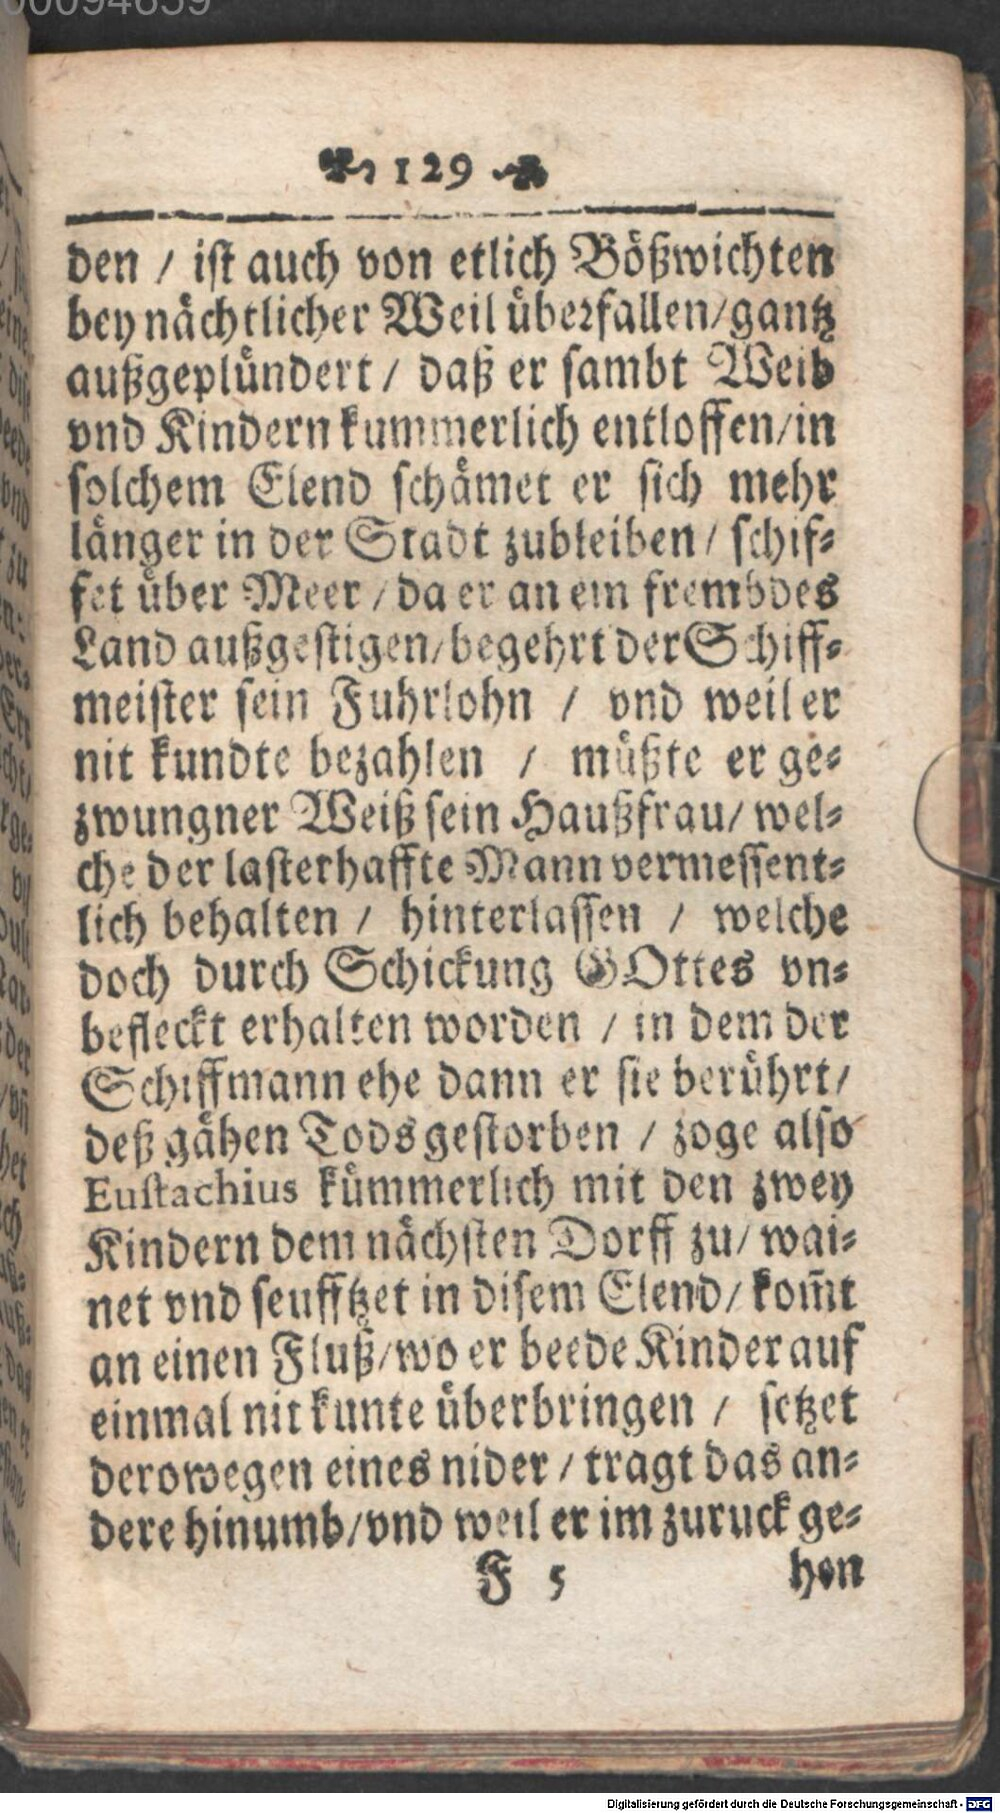 00094659
129
den / ist auch von etlich Bößwichten
bey nächtlicher Weil überfallen/gantz
außgeplündert / daß er sambt Weib
vnd Kindern kummerlich entloffen/in
solchem Elend schämet er sich mehr
länger in der Stadt zubleiben / schif-
fet über Meer / da er an ein frembdes
Land außgestigen/begehrt der Schiff-
meister sein Fuhrlohn / vnd weil er
nit kundte bezahlen / müßte er ge-
zwungner Weiß sein Haußfrau/ wel-
che der lasterhaffte Mann vermessent-
lich behalten / hinterlassen / welche
doch durch Schickung GOttes vn-
befleckt erhalten worden / in dem der
Schiffmann ehe dann er sie berührt/
deß gähen Tods gestorben / zoge also
Eustachius kümmerlich mit den zwey
Kindern dem nächsten Dorff zu/ wai-
net vnd seufftzet in disem Elend/ kom̃t
an einen Fluß/wo er beede Kinder auf
einmal nit kunte überbringen / setzet
derowegen eines nider / tragt das an-
dere hinumb/vnd weil er im zuruck ge-
F 5 hen
Digitalisierung gefördert durch die Deutsche Forschungsgemeinschaft - DFG